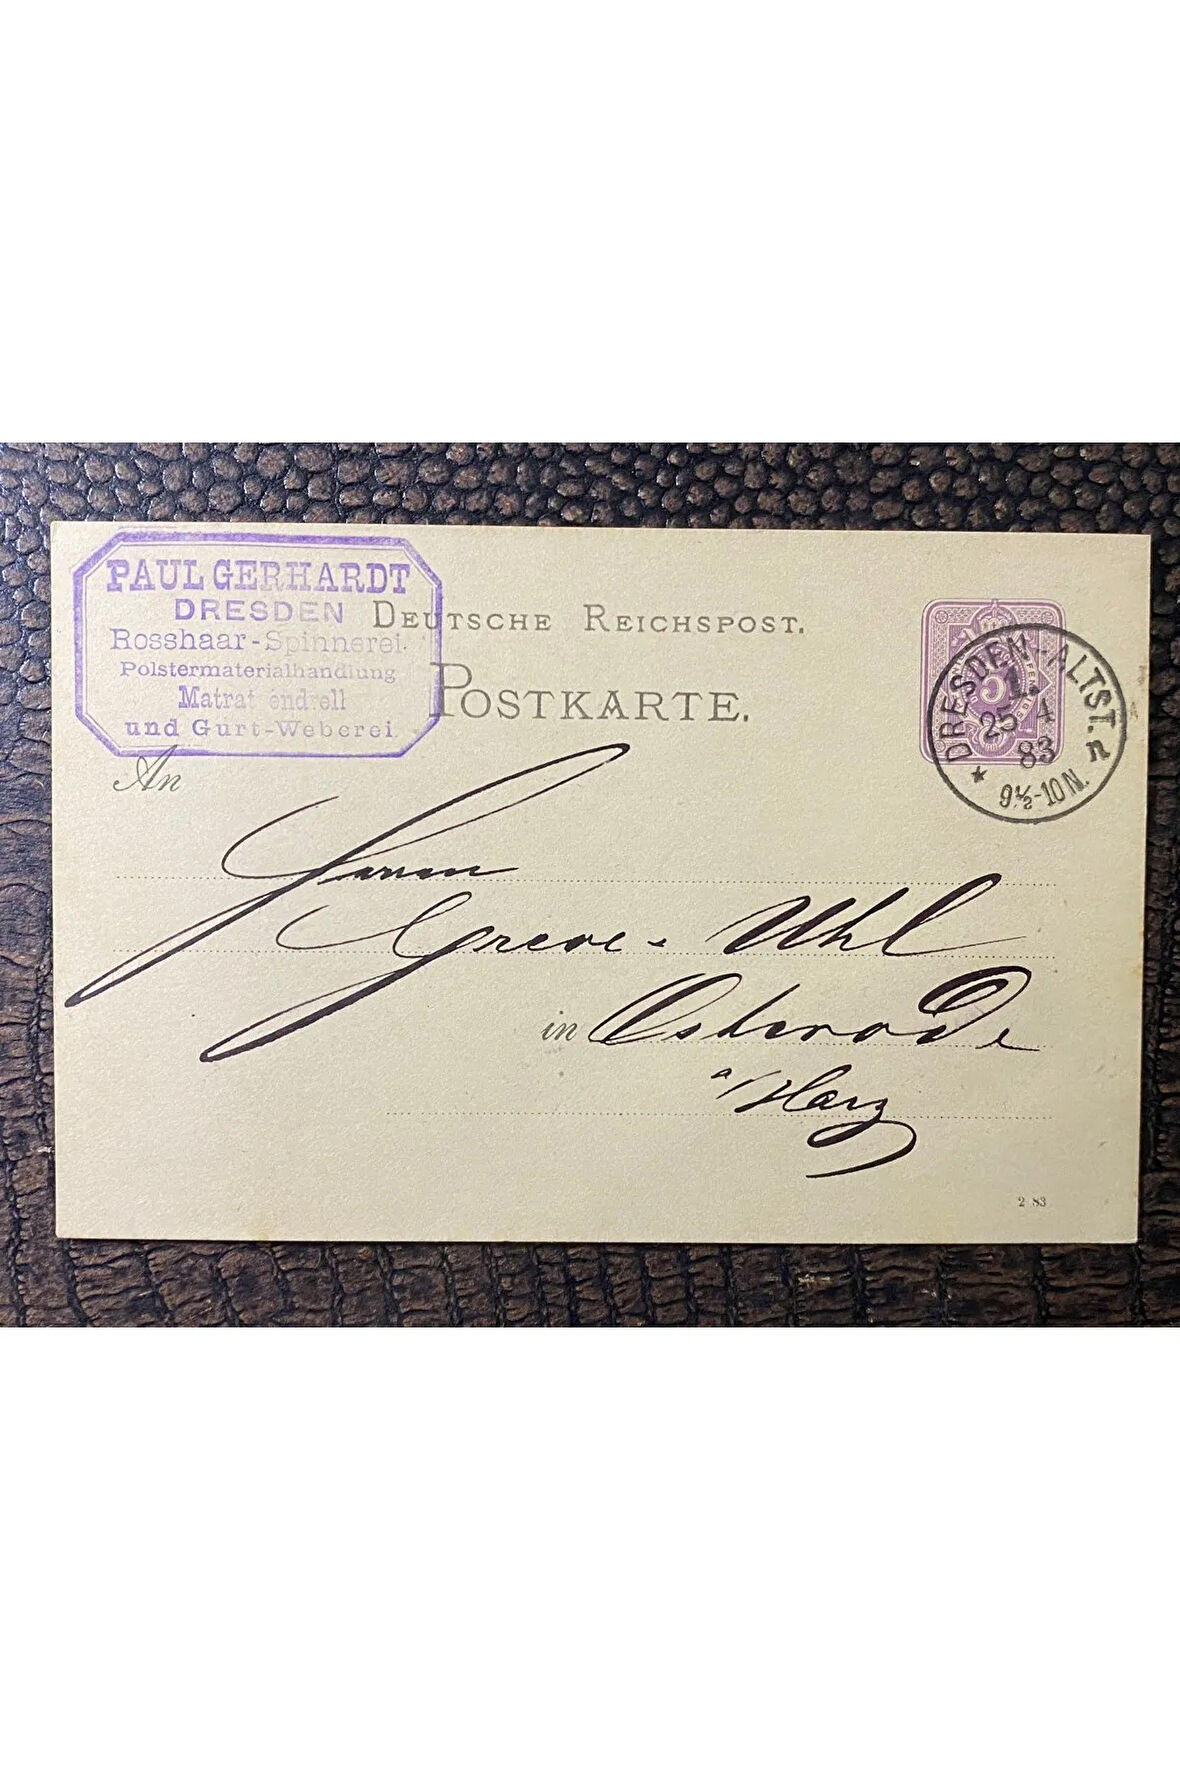 PAUL GERHARDT
DRESDEN
Rosshaar-Spinnerei.
Polstermaterialhandlung
Matratzendrell
und Gurt-Weberei.
DEUTSCHE REICHSPOST.
POSTKARTE.
DRESDEN-ALTST.
1.
25 4
83
9½-10N.
5
An
Herren
Greve & Uhl
in Osterode
a/Harz
2 83